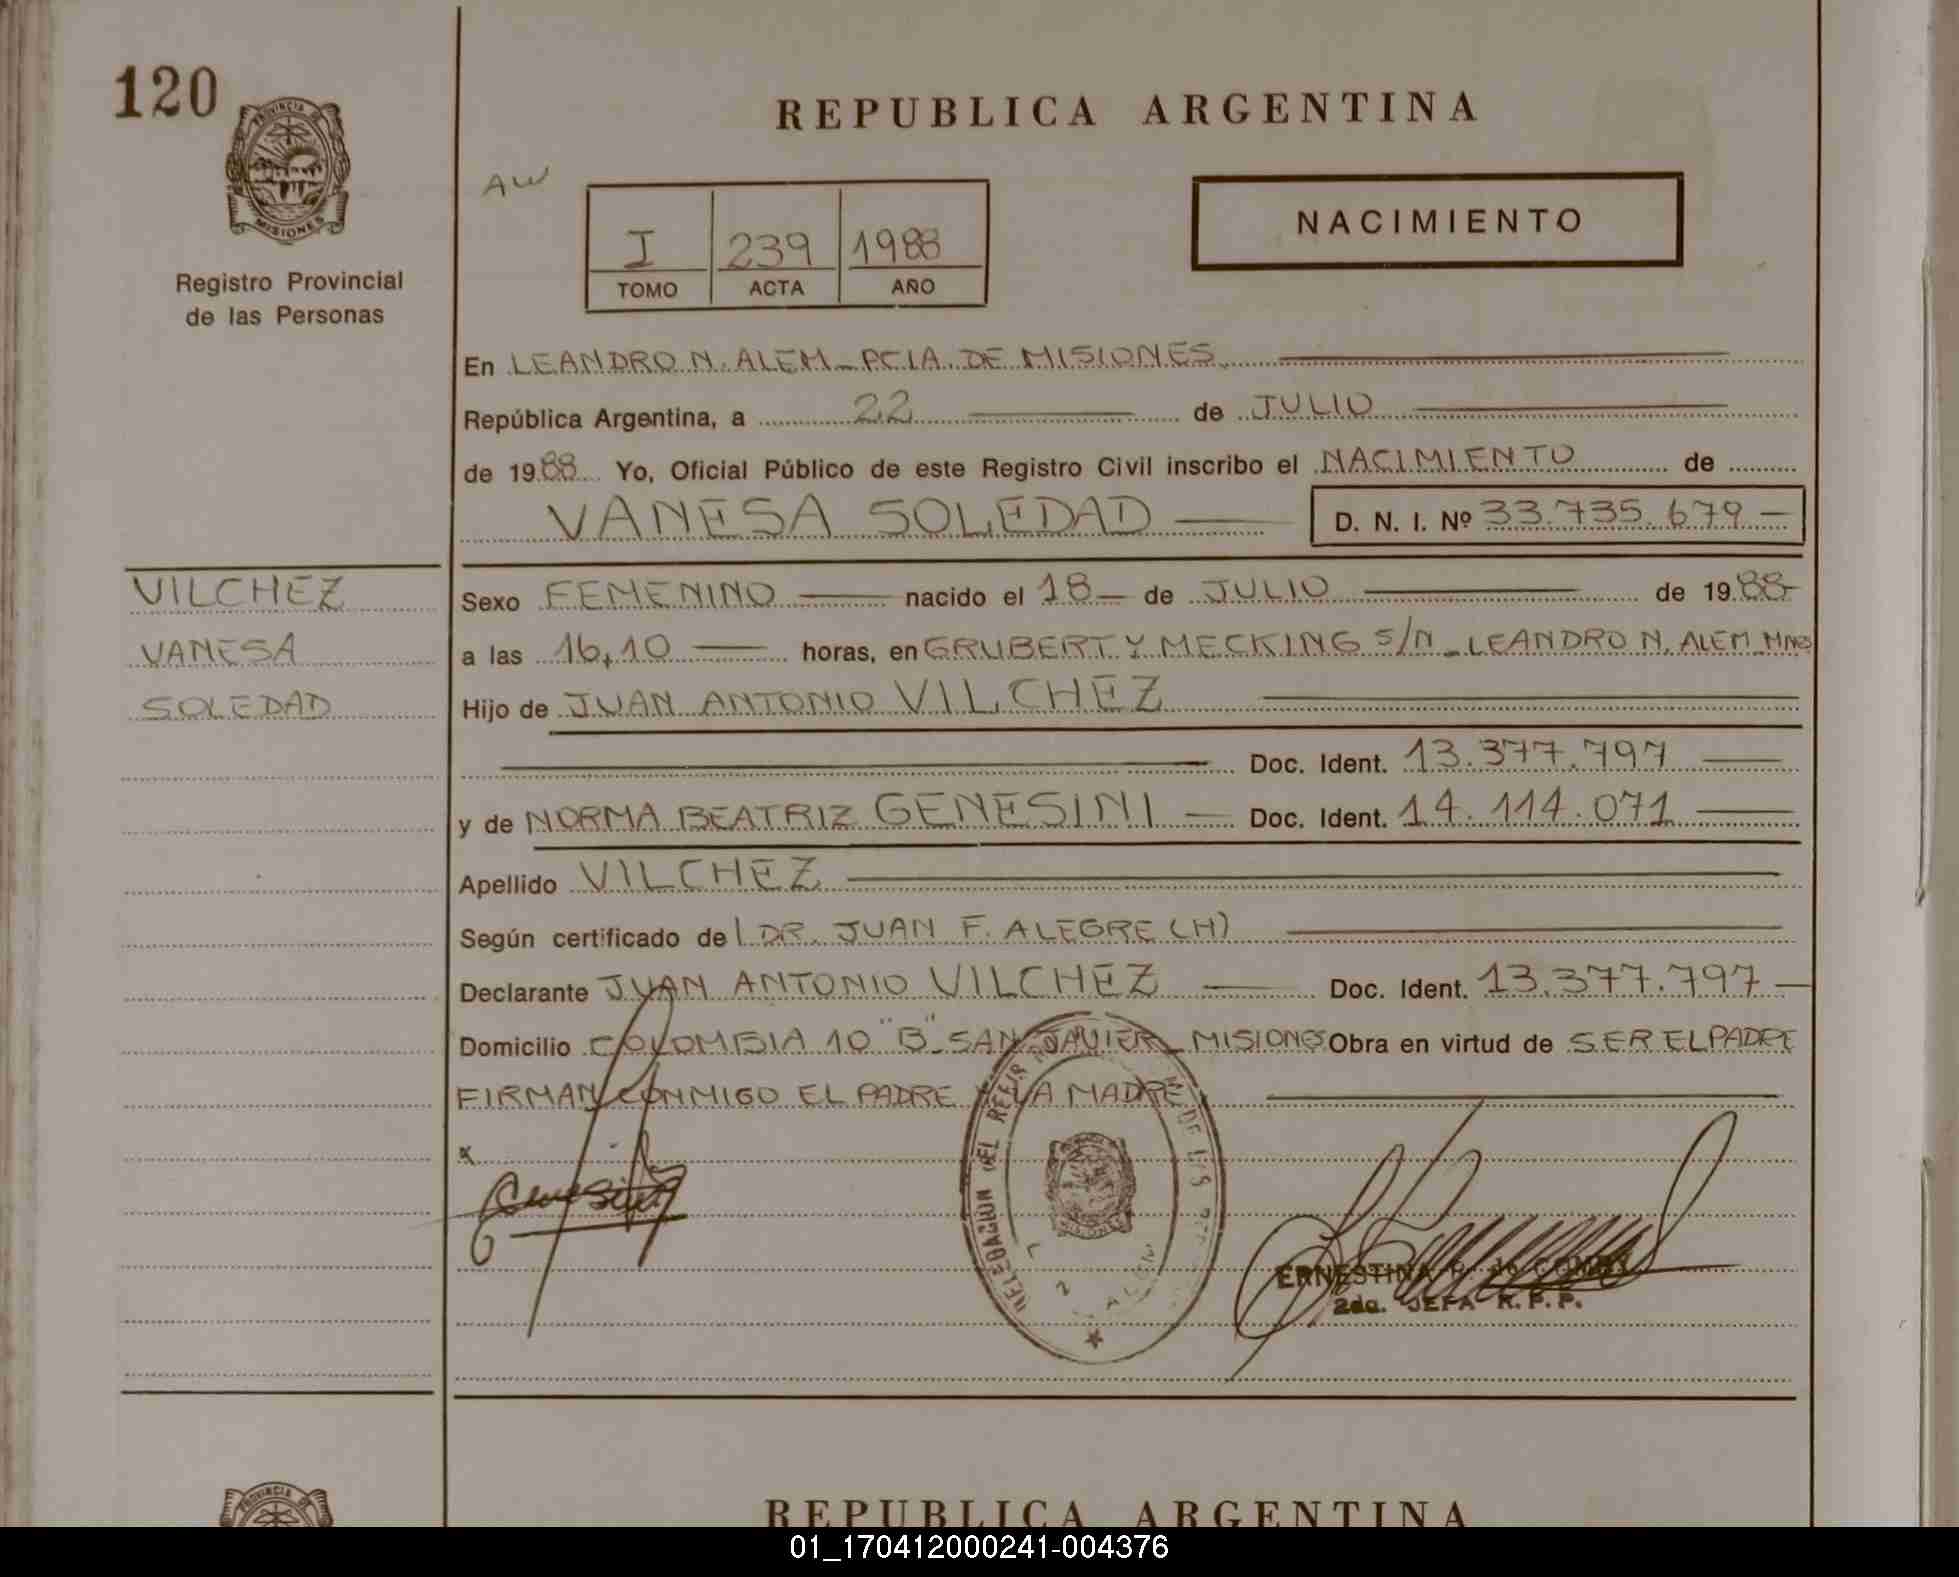 120
PROVINCIA DE
MISIONES
Registro Provincial
de las Personas
REPUBLICA ARGENTINA
AW
I 239 1988
TOMO ACTA AÑO
NACIMIENTO
En LEANDRO N. ALEM - PCIA. DE MISIONES
República Argentina, a 22 de JULIO
de 1988 Yo, Oficial Público de este Registro Civil inscribo el NACIMIENTO de
VANESA SOLEDAD D. N. I. Nº 33.735.679 -
VILCHEZ
VANESA
SOLEDAD
Sexo FEMENINO nacido el 18 de JULIO de 1988
a las 16,10 horas, en GRUBERT Y MECKING S/N - LEANDRO N. ALEM MNES
Hijo de JUAN ANTONIO VILCHEZ
Doc. Ident. 13.377.797
y de NORMA BEATRIZ GENESINI Doc. Ident. 14.114.071
Apellido VILCHEZ
Según certificado de DR. JUAN F. ALEGRE (H)
Declarante JUAN ANTONIO VILCHEZ Doc. Ident. 13.377.797
Domicilio COLOMBIA 10 "B" - SAN JAVIER - MISIONES Obra en virtud de SER EL PADRE
FIRMAN CONMIGO EL PADRE Y LA MADRE
DELEGACION DEL REGISTRO DE LAS
MISIONES
ERNESTINA
2da. JEFA R. P. P.
PROVINCIA DE
REPUBLICA ARGENTINA
01_170412000241-004376